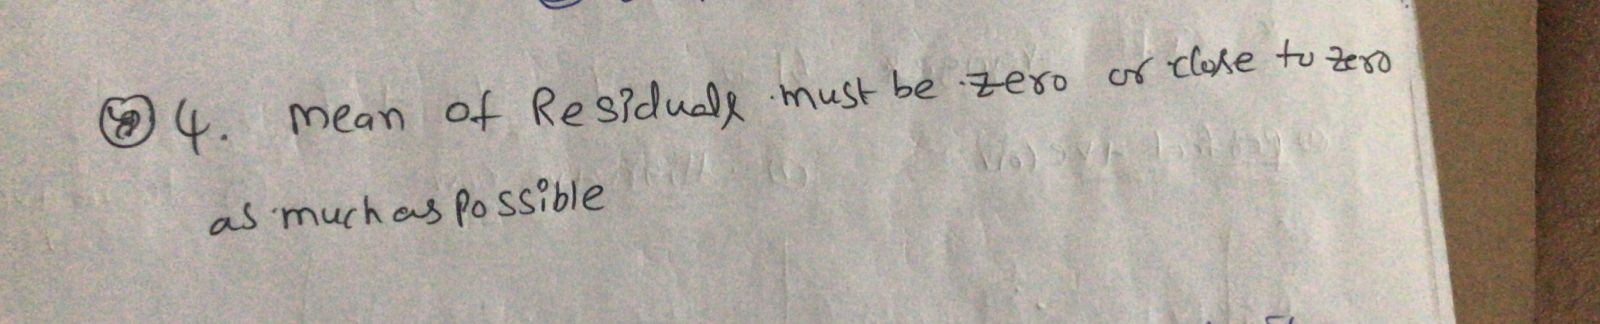 4. mean of Residuals must be zero or close to zero
as much as possible